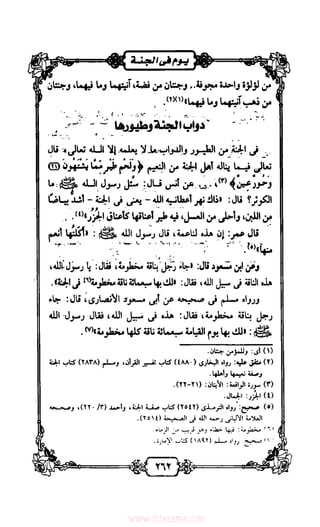 يوم في الجنة
من لؤلؤة واحدة مجوفة.. وجنتان من فضة، آنيتهما وما فيهما، وجنتان
من ذهب آنيتهما وما فيهما»(١)(٢).
دواب الجنة وطيورها
في الجنة من الطيور والدواب ما لا يعلمه إلا الله تعالى قال
تعالى فيما يناله أهل الجنة من النعيم ﴿وَلَحْمِ طَيْرٍ مِّمَّا يَشْتَهُونَ (٢١)
وَحُورٌ عِينٌ﴾ (٣)، عن أنس قال: سئل رسول الله ﷺ: ما
الكوثر؟ قال: «ذاك نهر أعطانيه الله - يعني في الجنة - أشد بياضًا
من اللبن، وأحلى من العسل، فيه طير أعناقها كأعناق الجُزُر»(٤).
قال عمر: إن هذه لناعمة، قال رسول الله ﷺ: «أكلتها أنعم
منها»(٥).
وعن ابن مسعود قال: «جاء رجل بناقة مخطومة، فقال: يا رسول الله،
هذه الناقة في سبيل الله، فقال: «لك بها سبعمائة ناقة مخطومة(٦) في الجنة».
ورواه مسلم في صحيحه عن أبي مسعود الأنصاري، قال: جاء
رجل بناقة مخطومة، فقال: هذه في سبيل الله، فقال رسول الله
ﷺ: «لك بها يوم القيامة سبعمائة ناقة كلها مخطومة»(٧).
(١) أي: وللمؤمن جنتان.
(٢) متفق عليه: رواه البخاري (٤٨٨٠) كتاب تفسير القرآن، ومسلم (٢٨٣٨) كتاب الجنة
وصفة نعيمها وأهلها.
(٣) سورة الواقعة: الآيتان: (٢١-٢٢).
(٤) الجُزُر: الجمال.
(٥) صحيح: رواه الترمذي (٢٥٤٢) كتاب صفة الجنة، وأحمد (٣/ ٢٢٠)، وصححه
العلامة الألباني رحمه الله في الصحيحة (٢٥١٤).
(٦) مخطومة: فيها خطام وهو قريب من الزمام.
(٧) صحيح: رواه مسلم (١٨٩٢) كتاب الإمارة.
٢٦٢
www.ibtesama.com